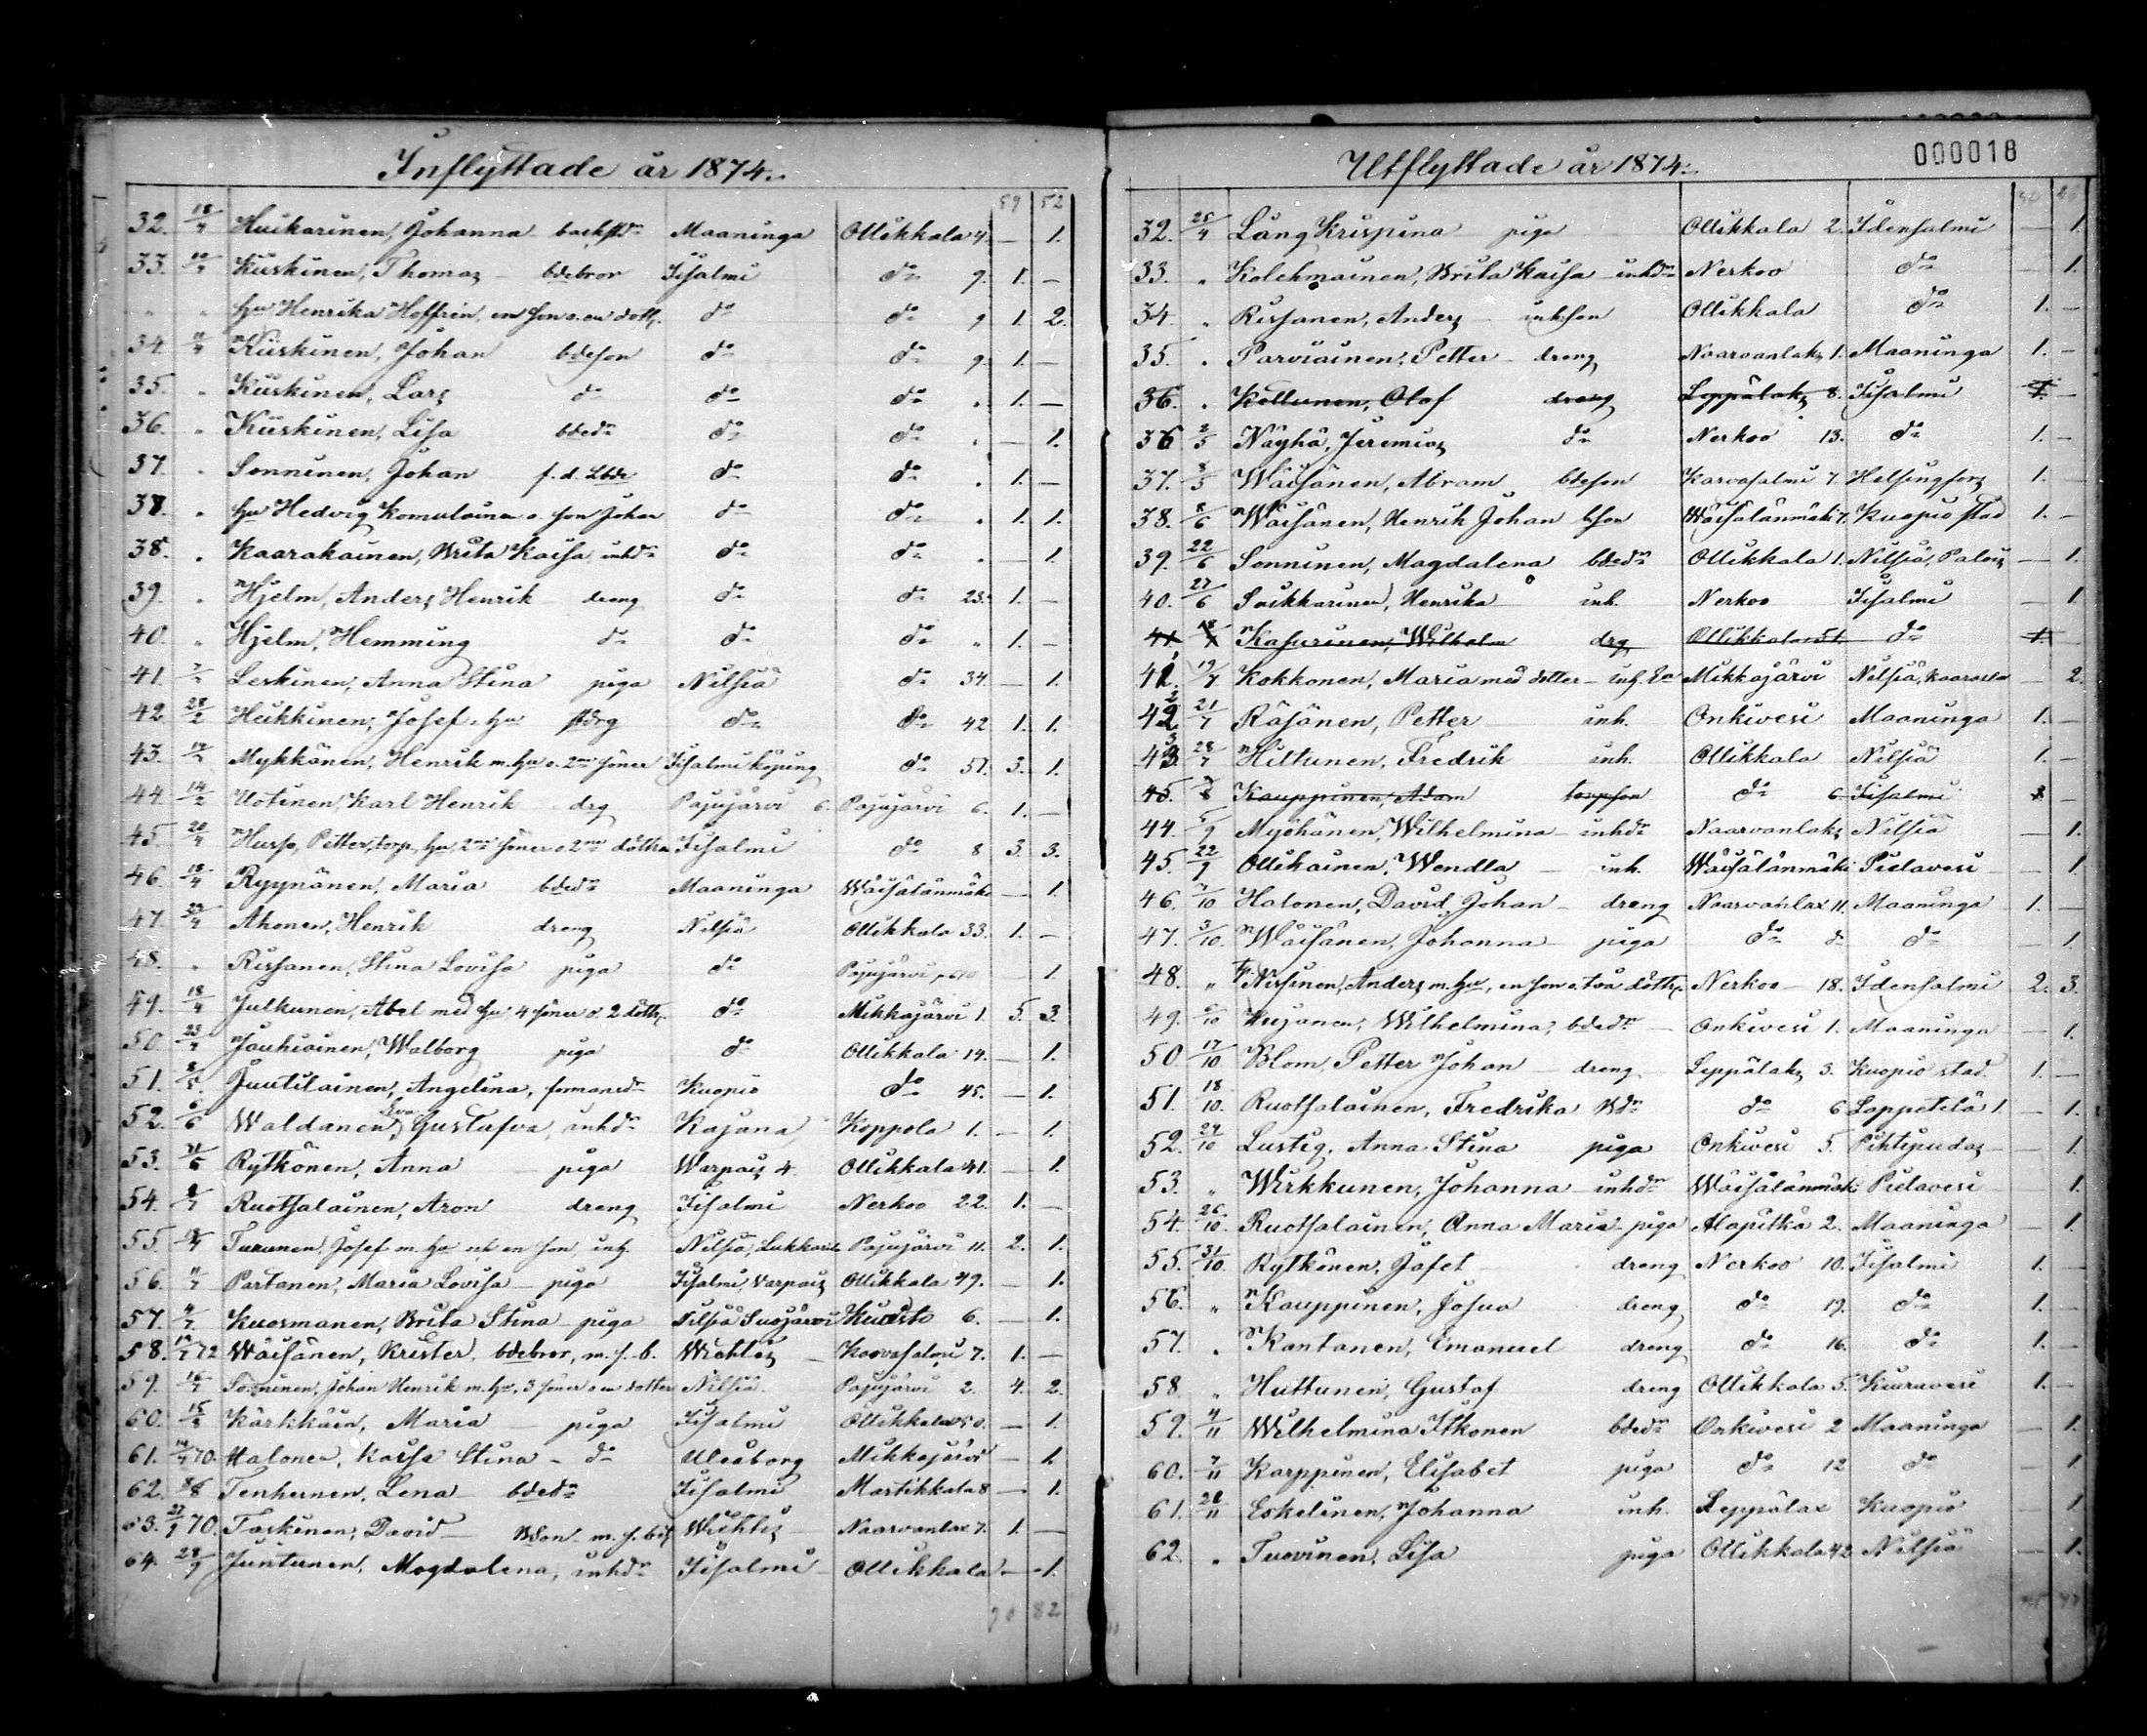 Inflyttade år 1874.
59 52
32. 18/4 Huikarinen, Johanna backstdr Maaninga Ollikkala 4. — 1.
33. Kiiskinen, Thomas — bdebror Iisalmi do 9. 1. —
" " hu Henrika Hoffrén, en son o. en dottr. do do 9 1. 2.
34. Kiiskinen, Johan bdeson do do 9. 1. —
35. " Kiiskinen, Lars do do do " 1. —
36. " Kiiskinen, Lisa bdedr do do " — 1.
37. " Sonninen, Johan f. d. Lbde do do " 1. —
38. " hu Hedvig Komulainen o. son Johan do do " 1. 1.
38. " Kaarakainen, Brita Kaisa, inhdr do do " — 1.
39. " Hjelm, Anders Henrik — dreng do do 23. 1. —
40. " Hjelm, Hemming do do do " 1. —
41. Leskinen, Anna Stina piga Nilsiä do 34. — 1.
42. 28/2 Heikkinen, Josef o. hu stdrg do do 42 1. 1.
43. Mykkänen, Henrik m. hu o. 2ne söner Iisalmi köping do 57. 3. 1.
44. 14/2 Uotinen, Karl Henrik drg Pajujärvi 6. Pajujärvi 6. 1. —
45. 20/4 Hurso, Petter, torp., hu, 2ne söner o. 2ne döttrar Iisalmi do 8 3. 3.
46. 18/4 Ryynänen, Maria bdedr Maaninga Wäisälänmäki — 1.
47. Ahonen, Henrik dreng Nilsiä Ollikkala 33. 1. —
48. " Rissanen, Stina Lovisa piga do Pajujärvi — 1.
49. 18/4 Julkunen, Abel med hu 4 söner o. 2 döttr. do Mikkajärvi 1. 5. 3.
50. 23/4 Jauhiainen, Walborg piga do Ollikkala 14. — 1.
51. 8/5 Juutilainen, Angelina, Kuopio do 45. — 1.
52. 6/6 Waldanen, Eva Gustafva, inhdr Kajana Koppola 1. — 1.
53. Rytkönen, Anna — piga Warpais 4. Ollikkala 41. — 1.
54. Ruotsalainen, Aron dreng Iisalmi Nerkoo 22. 1. —
55. Turunen, Josef m. hu och en son, inh. Nilsiä, Pajujärvi 11. 2. 1.
56. 11/7 Partanen, Maria Lovisa — piga Iisalmi, Varpais Ollikkala 49. — 1.
57. 4/7 Kuosmanen, Brita Stina — piga Nilsiä Suojärvi 6. — 1.
58. 72 Wäisänen, Krister, bdebror, m. f. b. Wichtis — Kaarvasalmi 7. 1. —
59. Sonninen, Johan Henrik m. hu, 3 söner o en dotter Nilsiä Pajujärvi 2. 4. 2.
60. Kärkkäin, Maria — piga Iisalmi Ollikkala 50. — 1.
61. 70. Halonen, Kaisa Stina — do Uleåborg Mikkajärvi — 1.
62. Tenhunen, Lena — bdedr Iisalmi Martikkala 8 — 1.
63. 70. Taskinen, David — m. f. bet Wichtis Naarvanlax 7. 1. —
64. 28/9 Juntunen, Magdalena, inhdr Iisalmi — Ollikkala — 1.
70 82
Utflyttade år 1874.
000018
32. 25/4 Lång Krispina piga Ollikkala 2. Idensalmi — 1.
33. " Kolehmainen, Brita Kaisa — inhdr Nerkoo do — 1.
34. " Rissanen, Anders — inhson Ollikkala do 1. —
35. " Parviainen, Petter — dreng Naarvanlaks 1. Maaninga 1. —
36. " Kettunen, Olof dreng Leppälaks 8. Iisalmi 1. —
36 2/5 Näyhä, Jeremias do Nerkoo 13. do 1. —
37. 8/5 Wäisänen, Abram bdeson Karvasalmi 7. Helsingfors 1. —
38. Wäisänen, Henrik Johan bson Wäisälänmäki 7. Kuopio stad 1. —
39. 22/6 Sonninen, Magdalena bdedr Ollikkala 1. Nilsiä, Palois — 1.
40. 27/6 Soikkarinen, Henrika inh. Nerkoo Iisalmi — 1.
41. Kasurinen, Wilhelm drg Ollikkala 51. do 1. —
41. 19/7 Kokkonen, Maria med dotter — Mikkajärvi Nilsiä, — 2.
42. 21/7 Räsänen, Petter inh. Onkivesi Maaninga 1. —
43. 28/7 Hiltunen, Fredrik inh. Ollikkala Nilsiä 1. —
45. Kauppinen, Adam torpson do 6 Iisalmi 1 —
44. 5/9 Myöhänen, Wilhelmina — inhdr Naarvanlaks Nilsiä — 1.
45. 22/9 Ollikainen, Wendla — inh. Wäisälänmäki Pielavesi — 1.
46. Halonen, David Johan — dreng Naarvanlax 11. Maaninga 1. —
47. 3/10. Wäisänen, Johanna — piga do do — 1.
48. " Nissinen, Anders m. hu, en son o. två döttr. Nerkoo — 18. Idensalmi 2. 3.
49. Kujanen, Wilhelmina, bdedr — Onkivesi 1. Maaninga — 1.
50. 17/10 Blom, Petter Johan — dreng Leppälaks 3. Kuopio stad 1. —
51. 18/10. Ruotsalainen, Fredrika do 6 Lappetelä 1. — 1.
52. 24/10 Lustig, Anna Stina piga Onkivesi 5. Pihtipudas — 1.
53. " Wirkkunen, Johanna — inhdr Wäisälänmäki Pielavesi — 1.
54. 26/10. Ruotsalainen, Anna Maria — piga Alapitkä 2. Maaninga — 1.
55. 31/10. Rytkönen, Jafet — dreng Nerkoo 10. Iisalmi 1. —
56. " Kauppinen, Josua dreng do 19. do 1. —
57. " Kantanen, Emanuel dreng do 16. do 1. —
58 " Huttunen, Gustaf dreng Ollikkala 5. Kiuruvesi 1. —
59. 4/11 Wilhelmina Itkonen bdedr Onkivesi 2 Maaninga — 1.
60. 7/11 Karppinen, Elisabet piga do 12 do — 1.
61. 28/11 Eskelinen, Johanna inh. Leppälax Kuopio 1.
62. " Tuovinen, Lisa piga Ollikkala 42 Nilsiä — 1.